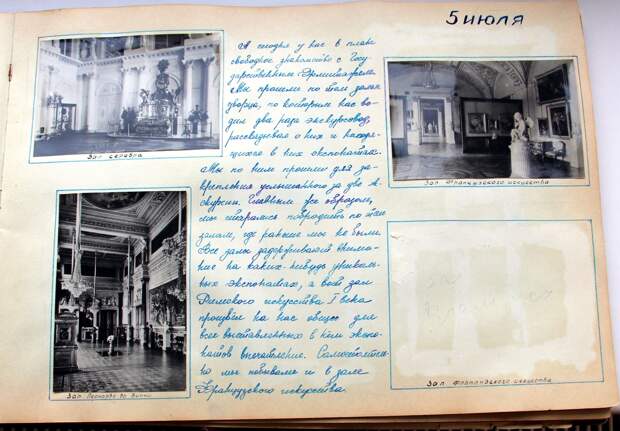 5 июля
А сегодня у нас в плане
свободное знакомство с Госу-
дарственным Эрмитажем.
Мы прошли по тем залам
дворца, по которым нас во-
дил два раза экскурсовод,
рассказывая о них и находя-
щихся в них экспонатах.
Мы по ним прошли для за-
крепления услышанного за две э-
кскурсии. Главным же образом,
мы старались побродить по тем
залам, где раньше мы не были.
Все залы задерживают внима-
ние на каких-нибудь уникаль-
ных экспонатах, а вот зал
Римского искусства I века
произвёл на нас общее для
всех выставленных в нём экспо-
натов впечатление. Самостоятель-
но мы побывали и в зале
Французского искусства.
Зал серебра
Зал Леонардо да Винчи
Зал Французского искусства
Зал Фламандского искусства